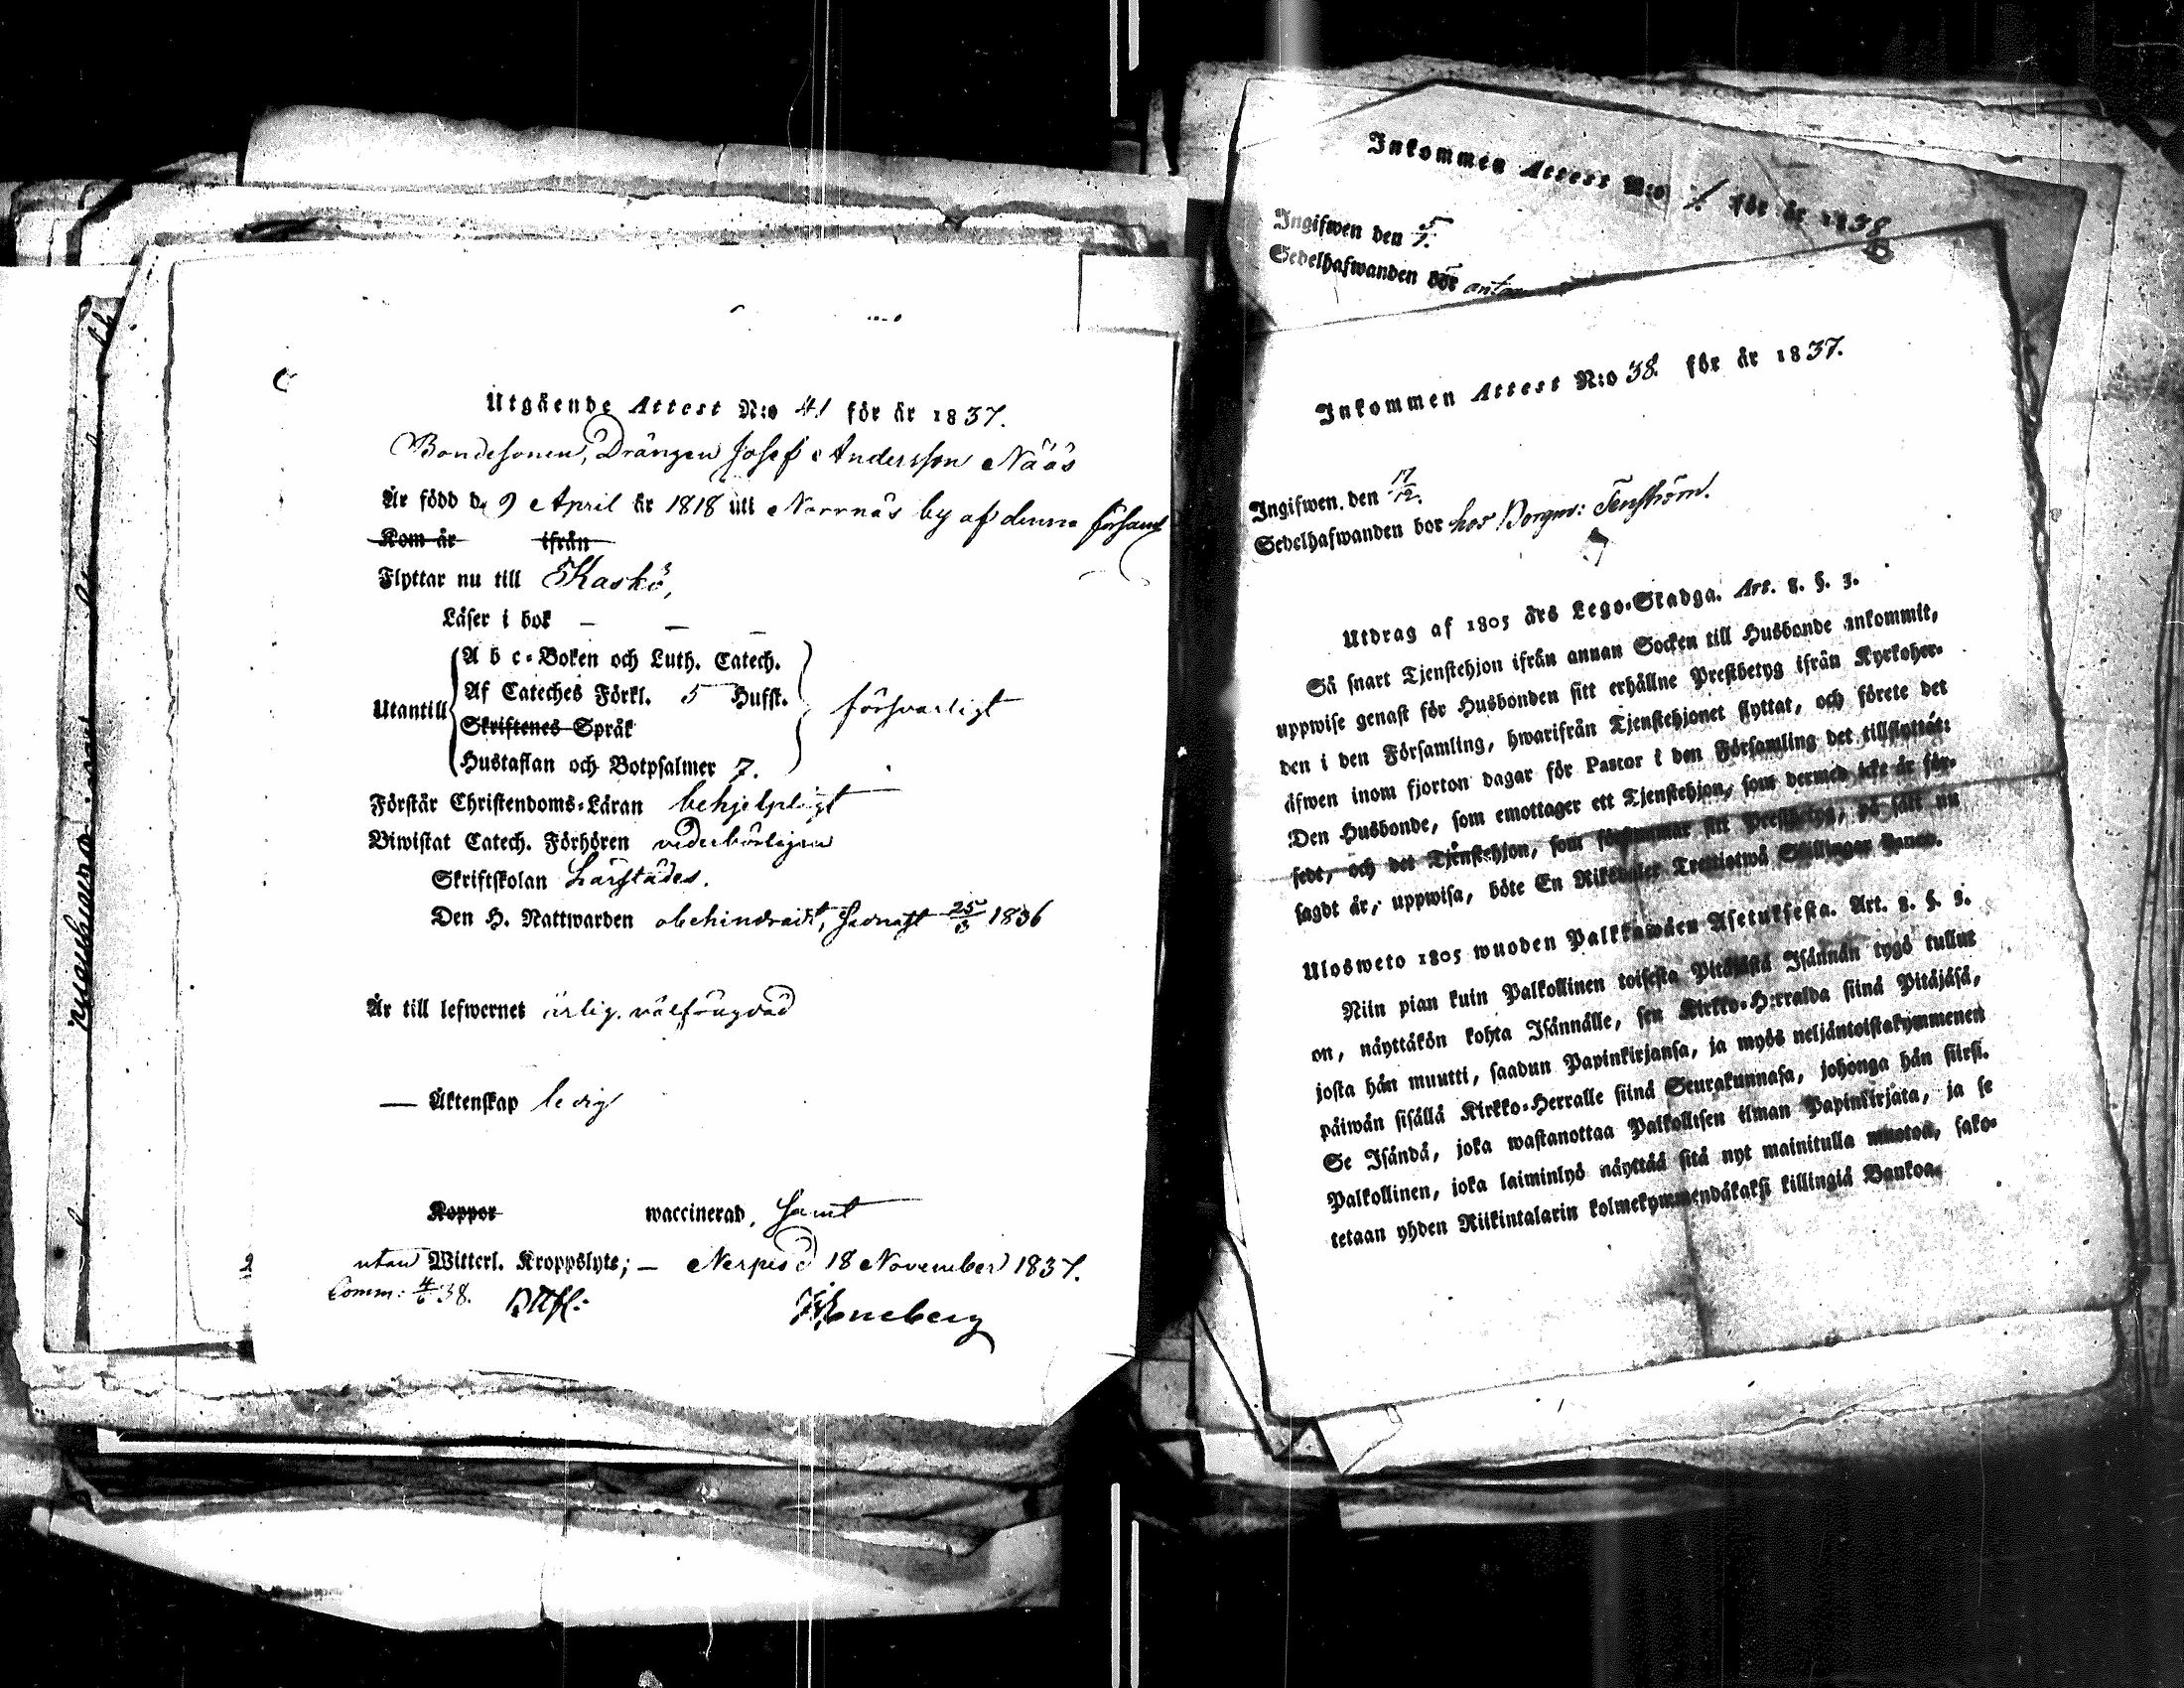 Utgående Attest N:o 41 för år 1837.
Bondesonen, Drängen Josef Andersson Nääs
Är född d. 9 April år 1818 uti Norrnäs by af denna församl
Kom år ifrån
Flyttar nu till Kaskö,
Läser i bok — — —
Utantill
A b c-Boken och Luth. Catech.
Af Cateches Förkl. 5 Hufst.
Skriftenes Språk
Hustaflan och Botpsalmer 7.
försvarligt
Förstår Christendoms-Läran behjelpligt
Biwistat Catech. Förhören vederbörligen
Skriftskolan härstädes.
Den H. Nattwarden obehindradt, senast 25/3 1836
Är till lefwernet ärlig. välfrägdad
— Äktenskap ledig
Koppor waccinerad, samt
utan Witterl. Kroppslyte; — Nerpes d 18 November 1837.
Comm: 4/6 38.
Inkommen Attest N:o 1. för år 1838
Ingifwen den 5/1.
Sedelhafwanden bor
Inkommen Attest N:o 38. för år 1837.
Ingifwen den 17/12.
Sedelhafwanden bor hos Borgm: Tenström.
Utdrag af 1805 års Lego-Stadga. Art. 8. §. 3.
Så snart Tjenstehjon ifrån annan Socken till Husbonde ankommit,
uppwise genast för Husbonden sitt erhållne Prestbetyg ifrån Kyrkoher-
den i den Församling, hwarifrån Tjenstehjonet flyttat, och förete det
äfwen inom fjorton dagar för Pastor i den Församling det tillflyttat:
Den Husbonde, som emottager ett Tjenstehjon, som dermed icke är för-
sedt, och det Tjenstehjon, som försummar sitt Prestbetyg, på sätt nu
sagdt är, uppwisa, böte En Riksdaler Trettiotwå Skillingar Banco.
Ulosweto 1805 wuoden Palkkawäen Asetuksesta. Art. 8. §. 3.
Niin pian kuin Palkollinen toisesta Pitäjästä Isännän tygö tullut
on, näyttäkön kohta Isännälle, sen Kirkko-Herralda siinä Pitäjäsä,
josta hän muutti, saadun Papinkirjansa, ja myös neljäntoistakymmenen
päiwän sisällä Kirkko-Herralle siinä Seurakunnasa, johonga hän siirsi.
Se Isändä, joka wastanottaa Palkollisen ilman Papinkirjata, ja se
Palkollinen, joka laiminlyö näyttää sitä nyt mainitulla muotoa, sako-
tetaan yhden Riikintalarin kolmekymmendäkaksi killingiä Bankoa.